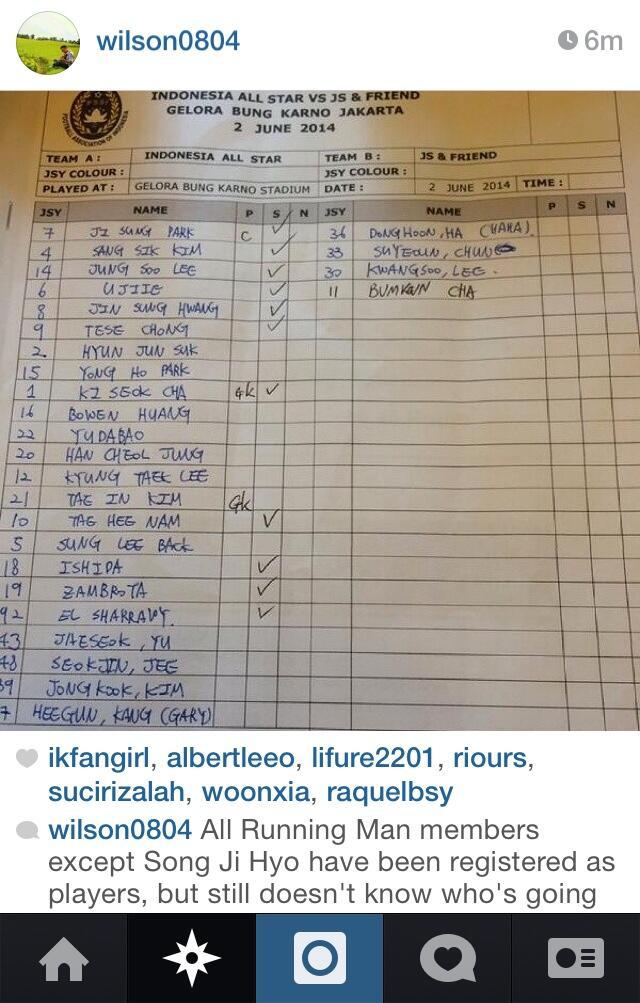 wilson0804 6m
INDONESIA ALL STAR VS JS & FRIEND
GELORA BUNG KARNO JAKARTA
2 JUNE 2014
TEAM A : INDONESIA ALL STAR TEAM B : JS & FRIEND
JSY COLOUR : JSY COLOUR :
PLAYED AT : GELORA BUNG KARNO STADIUM DATE : 2 JUNE 2014 TIME :
JSY NAME P S N JSY NAME P S N
7 JI SUNG PARK C ✓ 36 DONGHOON, HA (HAHA).
4 SANG SIK KIM ✓ 33 SUYEOUN, CHUN
14 JUNG SOO LEE ✓ 30 KWANGSOO, LEE.
6 UJIIE ✓ 11 BUMKUN CHA
8 JIN SUNG HWANG ✓
9 TESE CHONG ✓
2 HYUN JUN SUK
15 YONG HO PARK
1 KI SEOK CHA GK ✓
16 BOWEN HUANG
22 YUDABAO
20 HAN CHEOL JUNG
12 KYUNG TAEK LEE
21 TAE IN KIM GK
10 TAE HEE NAM ✓
5 SUNG LEE BACK
18 ISHIDA ✓
19 ZAMBROTA ✓
92 EL SHARRAVY. ✓
JAESEOK, YU
SEOKJIN, JEE
JONGKOOK, KIM
7 HEEGUN, KANG (GARY)
ikfangirl, albertleeo, lifure2201, riours,
sucirizalah, woonxia, raquelbsy
wilson0804 All Running Man members
except Song Ji Hyo have been registered as
players, but still doesn't know who's going